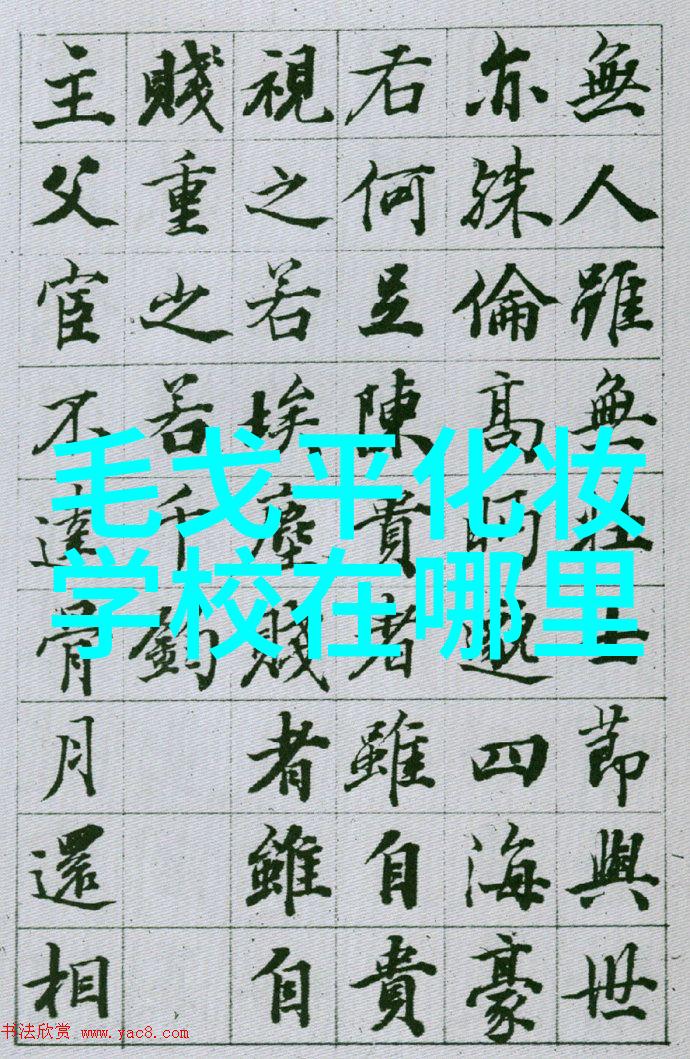 無人雖無壯士節與世
亦殊倫高眄邈四海豪
右何足陳貴者雖自貴
視之若埃塵賤者雖自
賤重之若千鈞
主父宦不達骨月還相
毛戈平化妆
学校在哪里
书法欣赏 www.yac8.com